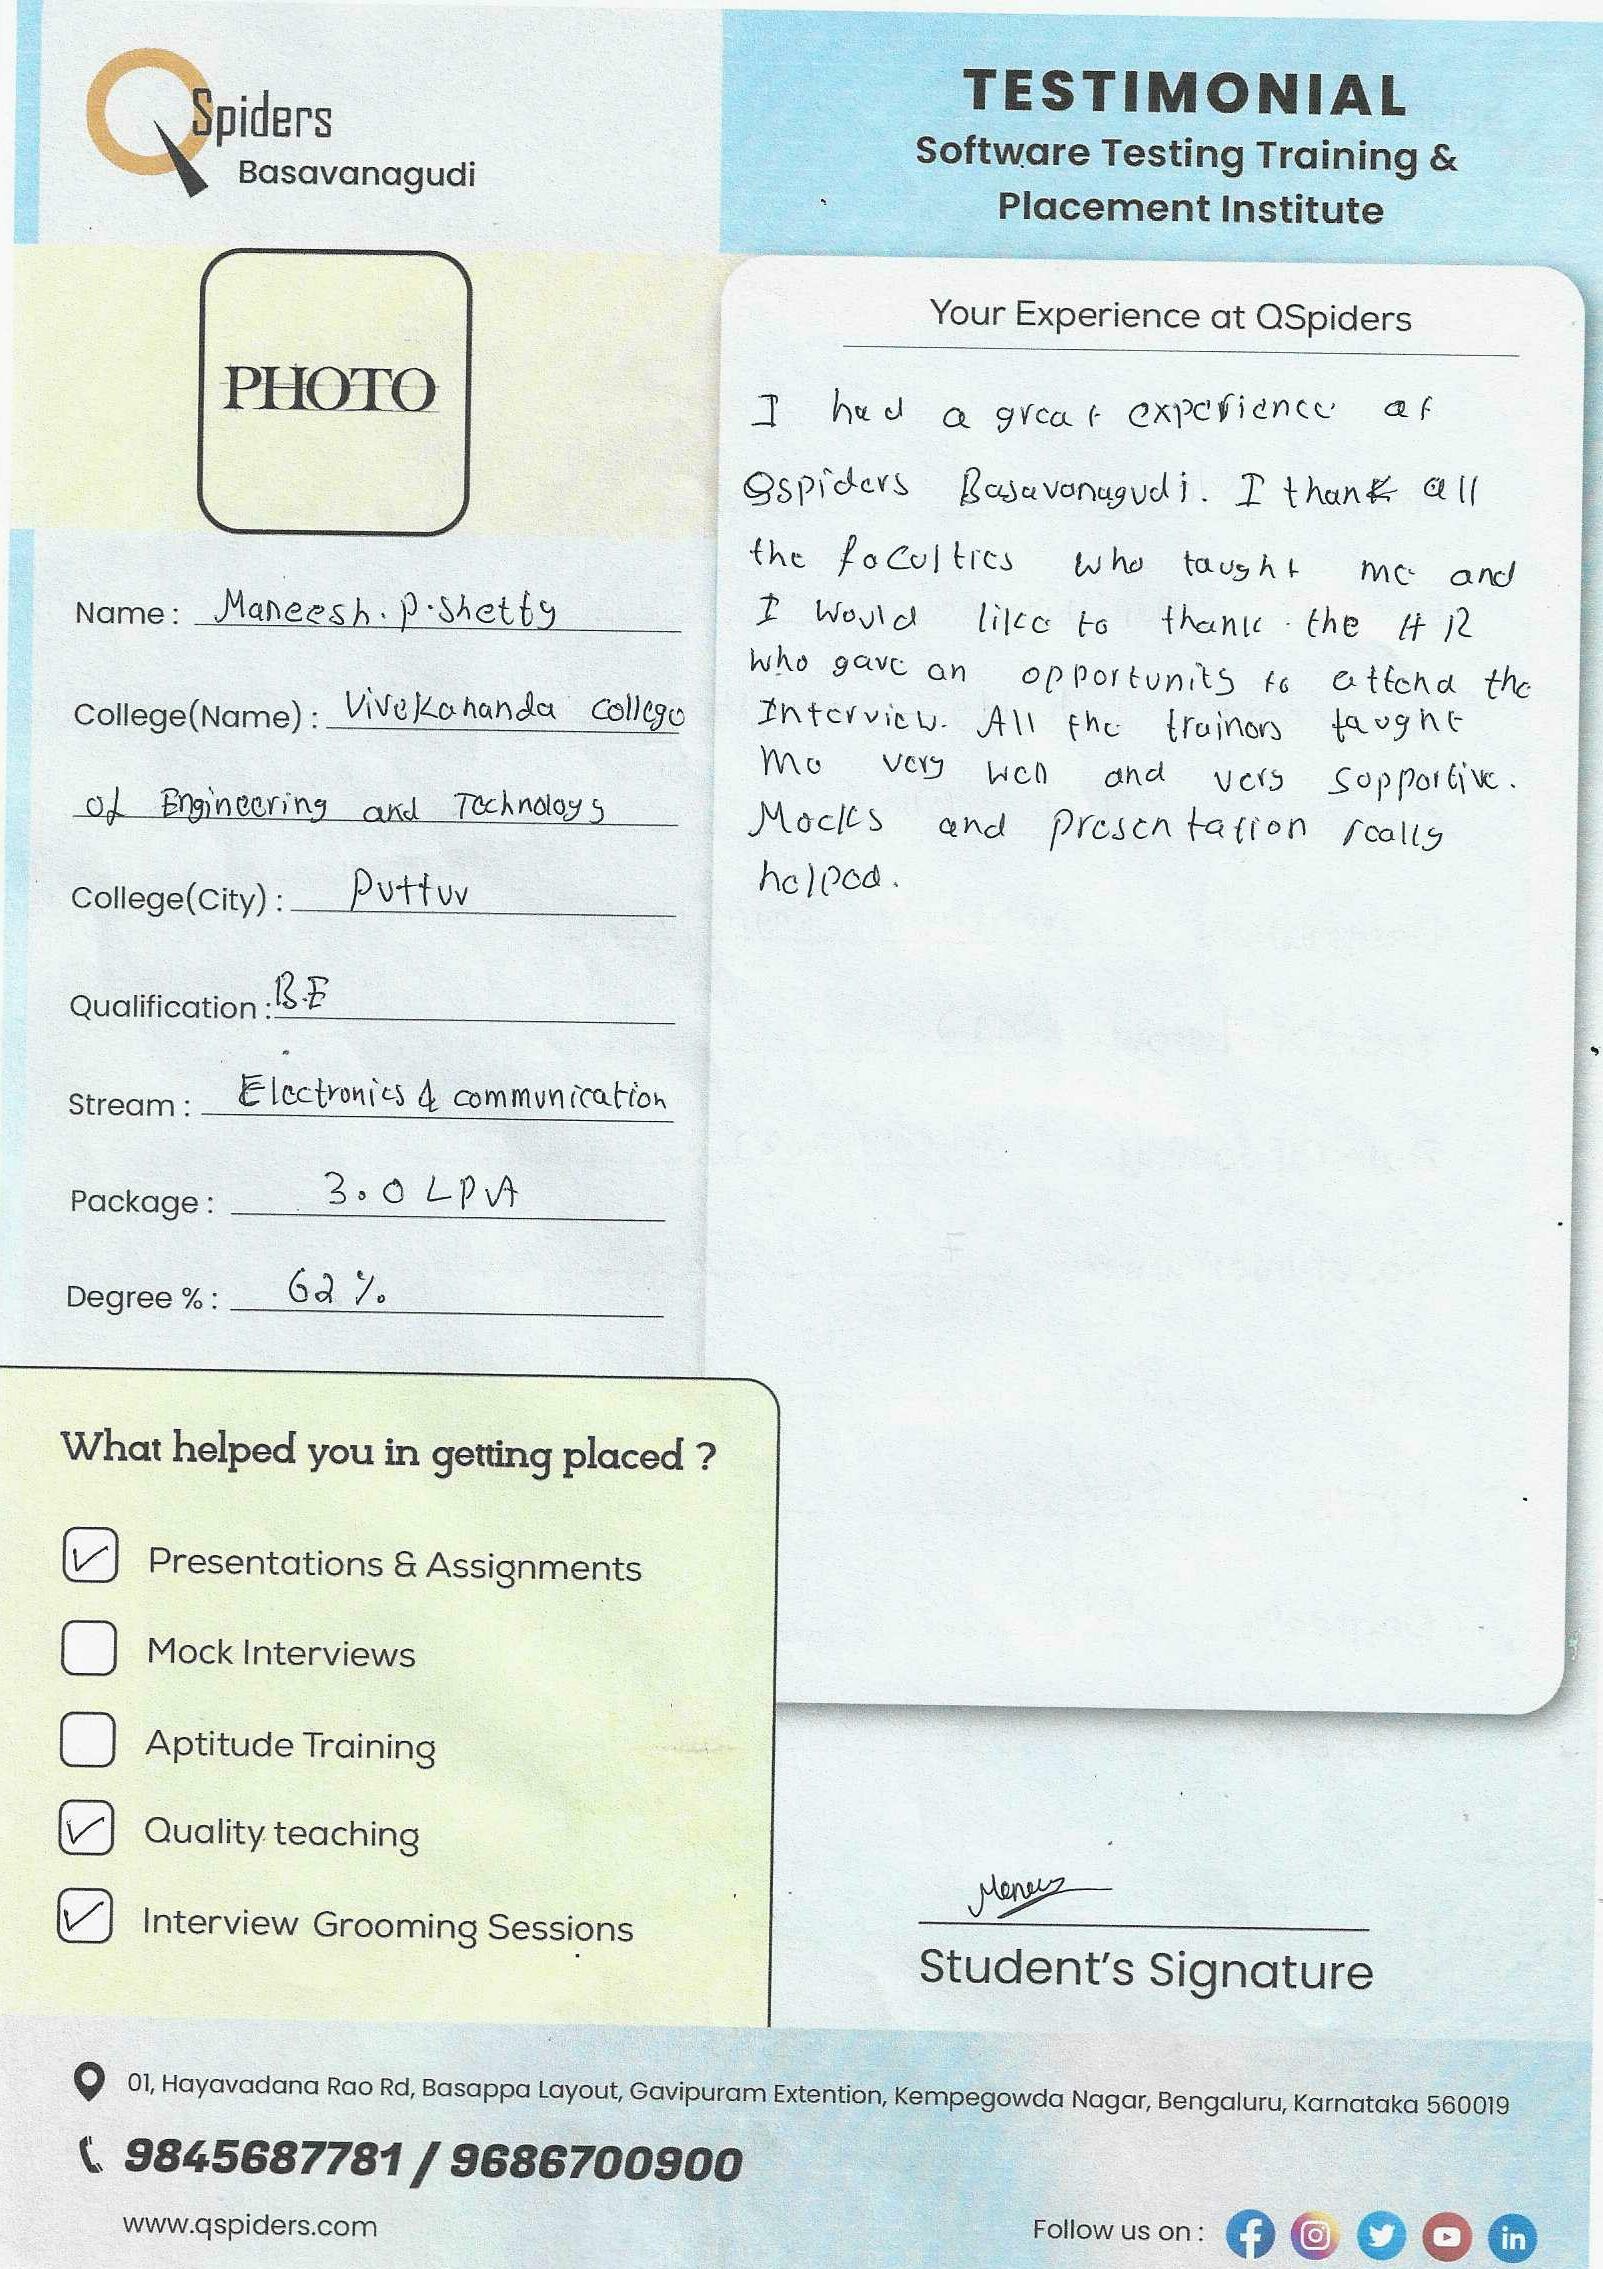 QSpiders
Basavanagudi
TESTIMONIAL
Software Testing Training &
Placement Institute
PHOTO
Name : Maneesh. P. Shetty
College(Name) : Vivekananda College
of Engineering and Technology
College(City) : Puttur
Qualification : B.E
Stream : Electronics & communication
Package : 3.0 LPA
Degree % : 62 %
Your Experience at QSpiders
I had a great experience at
Qspiders Basavanagudi. I thank all
the faculties who taught me and
I would like to thank the HR
who gave an opportunity to attend the
Interview. All the trainors taught
me very well and very supportive.
Mocks and presentation really
helped.
What helped you in getting placed ?
Presentations & Assignments
Mock Interviews
Aptitude Training
Quality teaching
Interview Grooming Sessions
Student's Signature
01, Hayavadana Rao Rd, Basappa Layout, Gavipuram Extention, Kempegowda Nagar, Bengaluru, Karnataka 560019
9845687781 / 9686700900
www.qspiders.com
Follow us on :